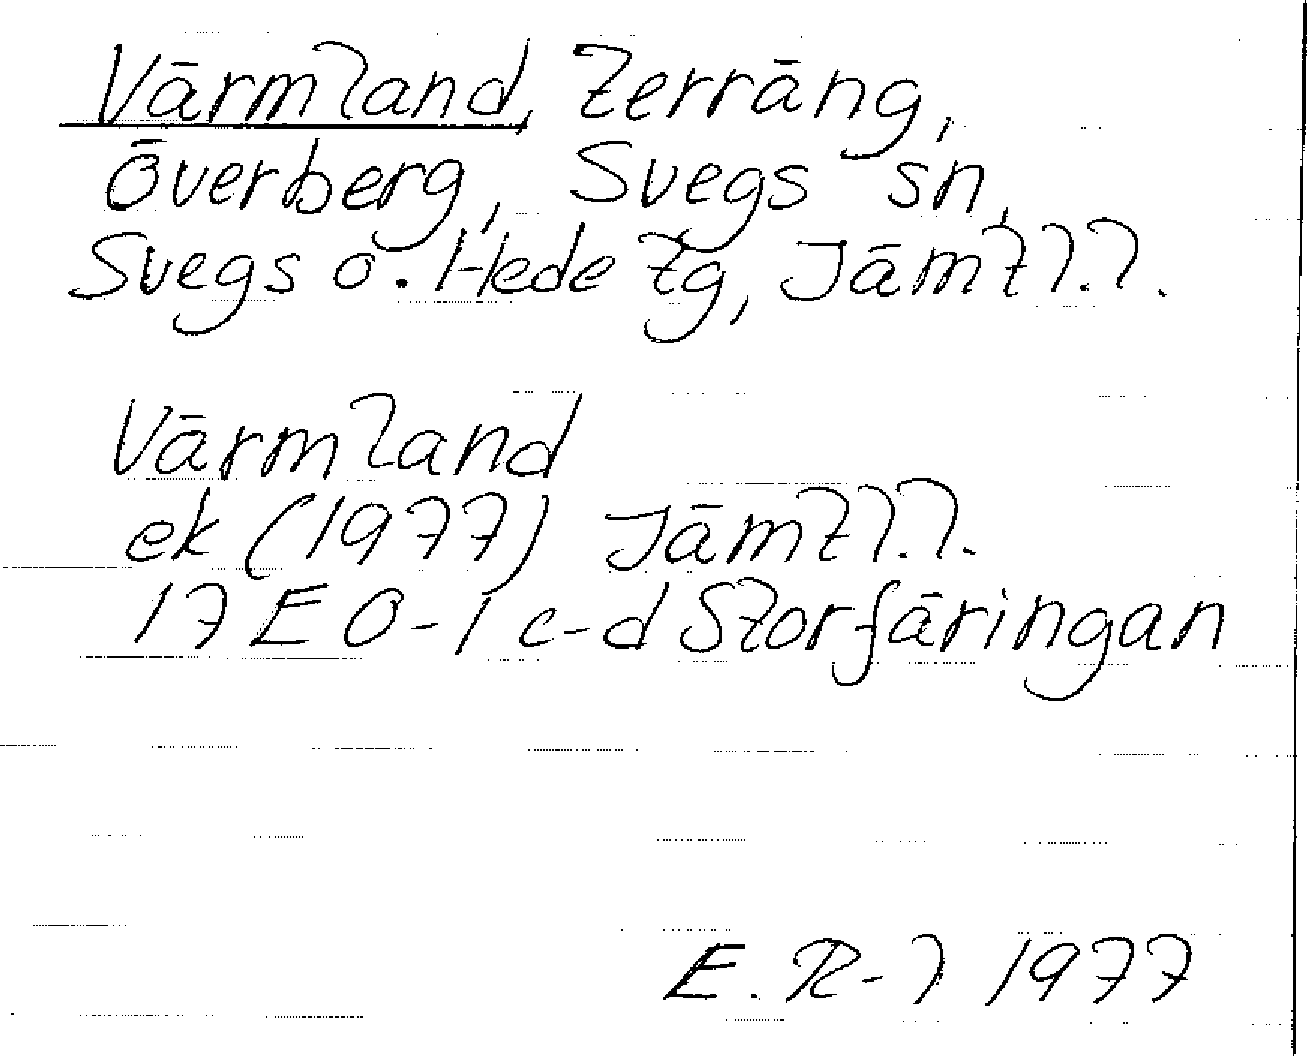 Värmland, terräng,
Överberg, Svegs sn,
Svegs o. Hede tg, Jämtl. l.
Värmland
ek (1977) Jämtl. l.
17 E 0-1 c-d Storfäringan
E. R-l 1977